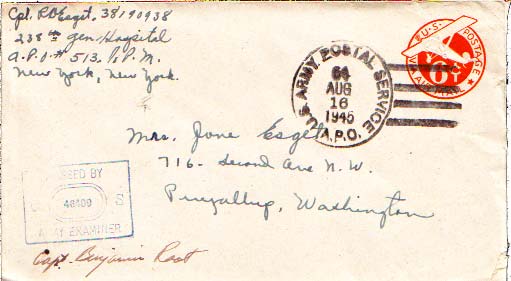 Cpl. R.D. Esget, 38190938
238th Gen. Hospital
A.P.O.# 513. % P.M.
New York, New York.
U.S. ARMY POSTAL SERVICE
64
AUG
16
1945
A.P.O.
U.S. POSTAGE
6¢
AIR MAIL
Mrs. Jane Esget
716- Second Ave N.W.
Puyallup, Washington
SSED BY
S
48409
ARMY EXAMINER
Capt. Benjamin Root